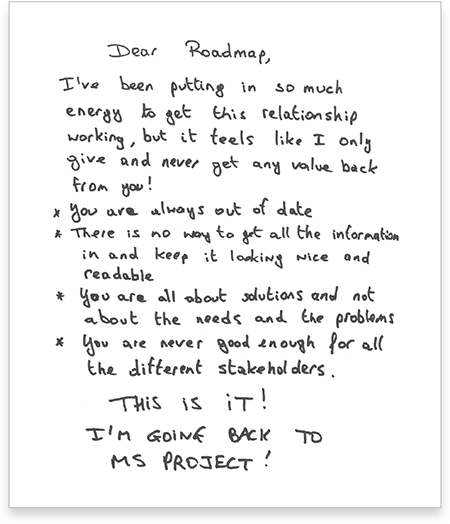 Dear Roadmap,
I've been putting in so much
energy to get this relationship
working, but it feels like I only
give and never get any value back
from you!
* You are always out of date
* There is no way to get all the information
in and keep it looking nice and
readable
* You are all about solutions and not
about the needs and the problems
* You are never good enough for all
the different stakeholders.
THIS IS IT!
I'M GOING BACK TO
MS PROJECT!